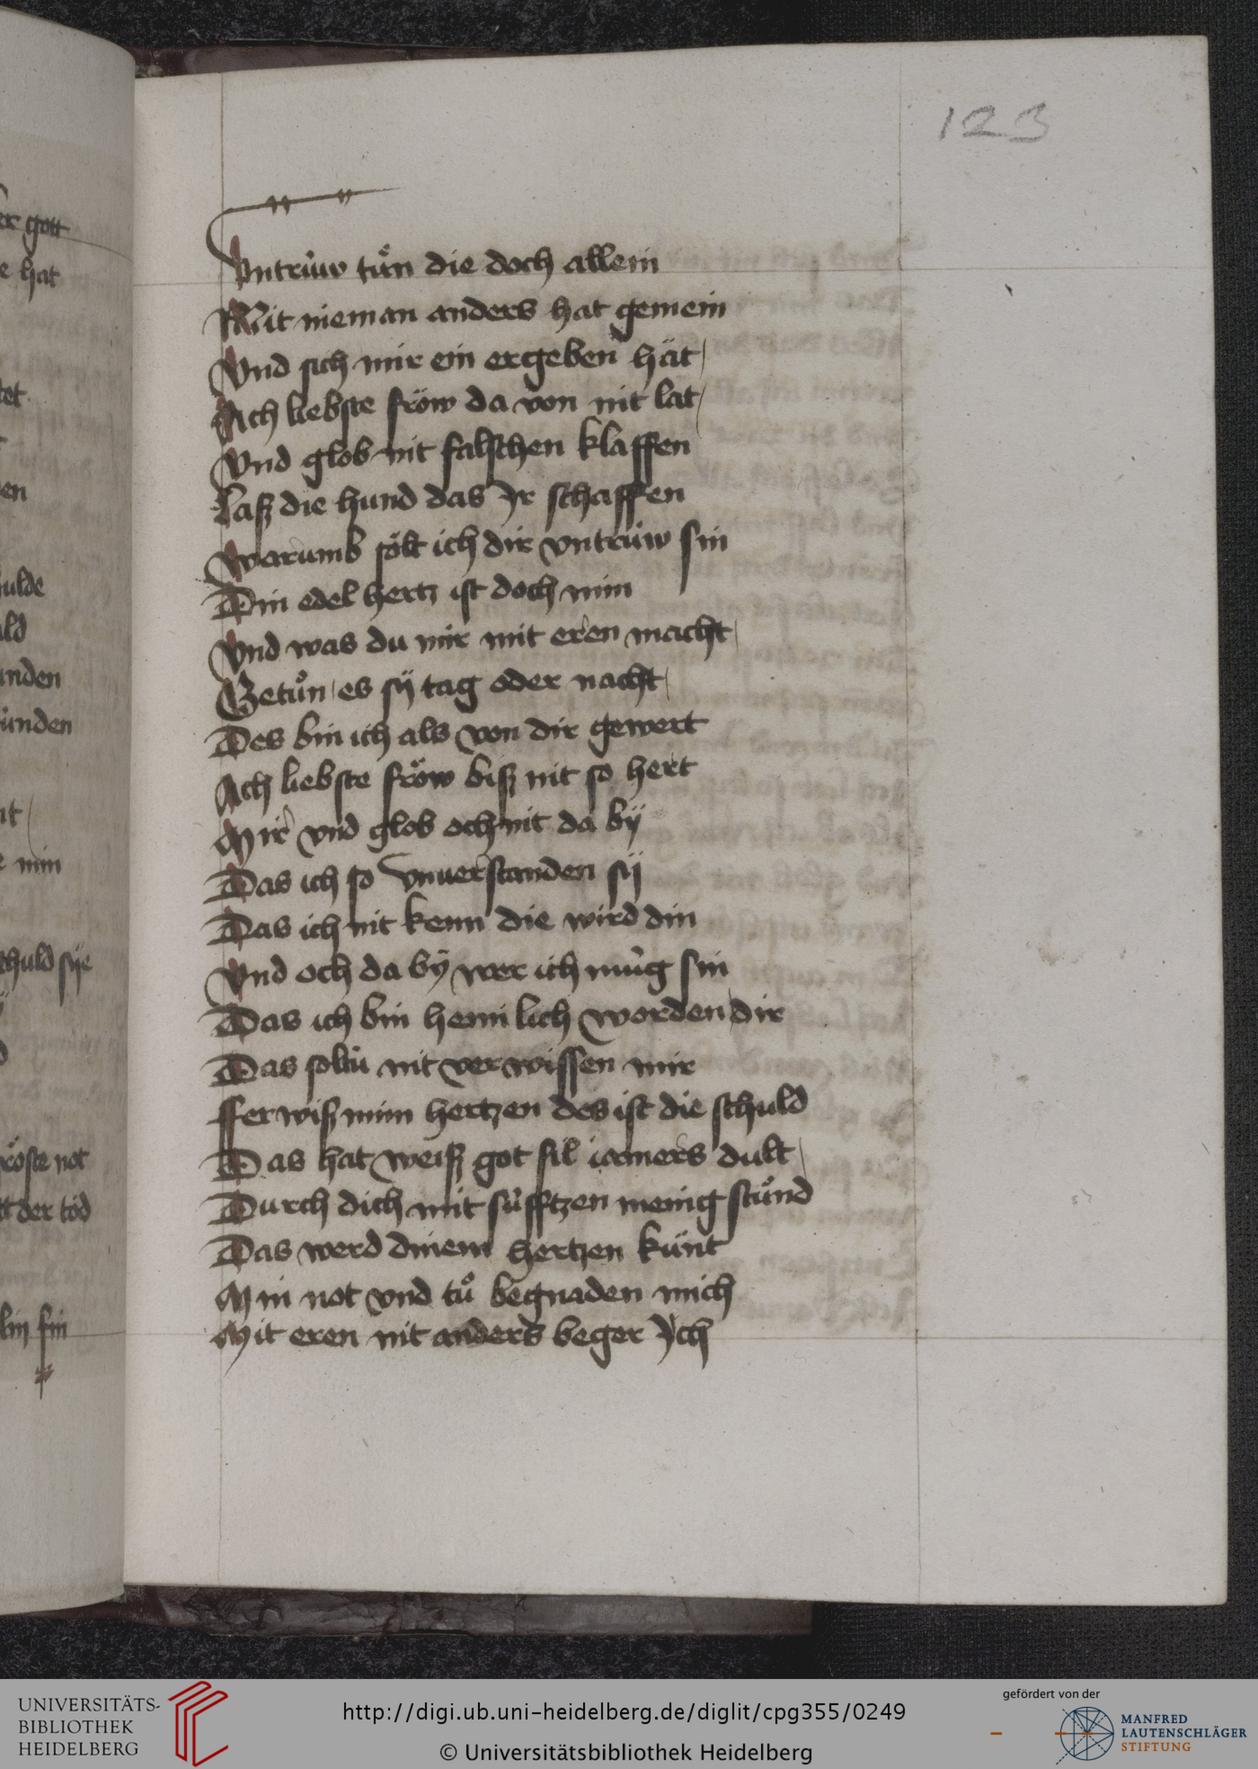 123
Vntrüw tuͦn die doch allein
Mit nieman anders hat gemein
Vnd sich mir ein ergeben hät
Ach liebste fröw da von nit lat
Vnd glob nit falschen klaffen
Laß die hund das Jr schaffen
Warumb sölt ich dir vntrüw sin
Din edel hertz ist doch min
Vnd was du mir mit eren macht
Getuͦn es sÿ tag oder nacht
Des bin ich als von dir gewert
Ach liebste fröw biß nit so hert
Mir vnd glob och nit da bÿ
Das ich so vnuerstanden sÿ
Das ich nit kenn die wird din
Vnd och da bÿ wer ich müg sin
Das ich bin heimlich worden dir
Das soltu nit verwissen mir
fferwiß mim hertzen des ist die schuld
Das hat weiß got fil iamers dult
Durch dich mit süfftzen menig stuͦnd
Das werd dinem hertzen künt
Min not vnd tuͦ begnaden mich
Mit eren nit anders beger Jch
er gott
e hat
tet
en
ulde
ld
nden
ünden
nt
e min
chuld sÿe
röste not
t der töd
lin sin
UNIVERSITÄTS-
BIBLIOTHEK
HEIDELBERG
http://digi.ub.uni-heidelberg.de/diglit/cpg355/0249
© Universitätsbibliothek Heidelberg
gefördert von der
MANFRED
LAUTENSCHLÄGER
STIFTUNG